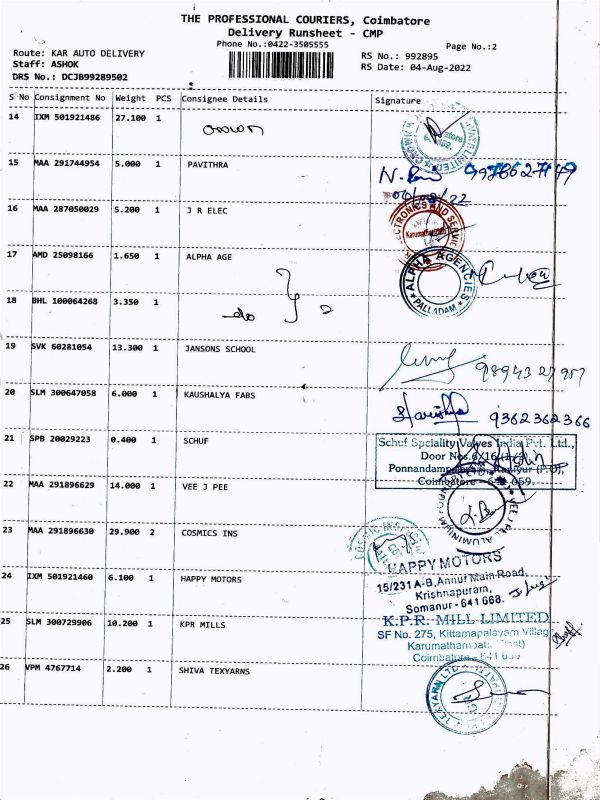 THE PROFESSIONAL COURIERS, Coimbatore
Delivery Runsheet - CMP
Phone No.:0422-3505555
Page No.:2
Route: KAR AUTO DELIVERY
RS No.: 992895
Staff: ASHOK
RS Date: 04-Aug-2022
DRS No.: DCJB99289502
S No Consignment No Weight PCS Consignee Details Signature
14 IXM 501921486 27.100 1
15 MAA 291744954 5.000 1 PAVITHRA
04/08/22
16 MAA 287050029 5.200 1 J R ELEC
17 AMD 25098166 1.650 1 ALPHA AGE
ALPHA AGENCIES
PALLADAM
18 BHL 100064268 3.350 1
19 SVK 60281054 13.300 1 JANSONS SCHOOL
20 SLM 300647058 6.000 1 KAUSHALYA FABS
9362362366
21 SPB 20029223 0.400 1 SCHUF
Schuf Spciality Valves India Pvt. Ltd.,
Door Nos.6/16
Coimbatore - 641 059.
22 MAA 291896629 14.000 1 VEE J PEE
23 MAA 291896630 29.900 2 COSMICS INS
24 IXM 501921460 6.100 1 HAPPY MOTORS
HAPPY MOTORS
15/231 A-B, Annur Main Road,
Krishnapuram,
Somanur - 641 668.
25 SLM 300729906 10.200 1 KPR MILLS
K.P.R. MILL LIMITED
SF No. 275, Kittamapalayam Villag
Coimbatore
26 VPM 4767714 2.200 1 SHIVA TEXYARNS
TEXYARN LTD